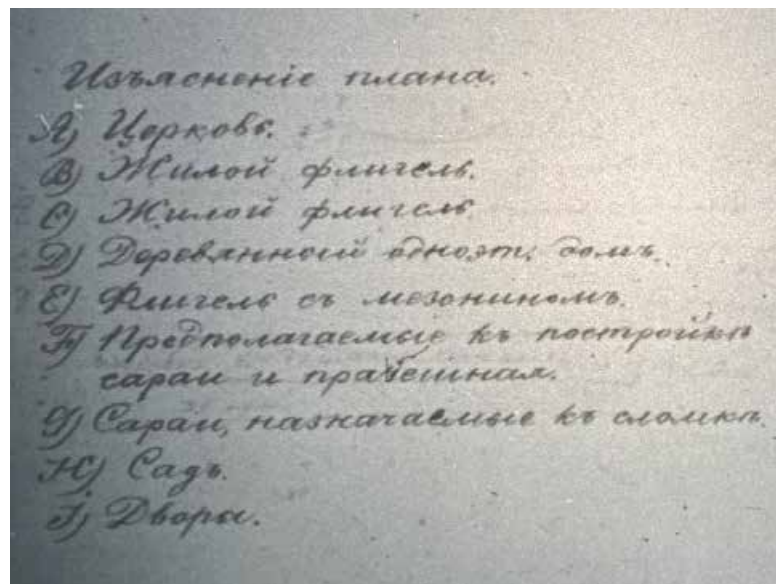 Изъясненіе плана.
A) Церковь.
B) Жилой флигель.
C) Жилой флигель
D) Деревянный одноэт. домъ.
E) Флигель съ мезониномъ.
F) Предполагаемые къ постройкѣ
сараи и прачешная.
G) Сараи, назначаемые къ сломкѣ.
H) Садъ.
I) Дворы.